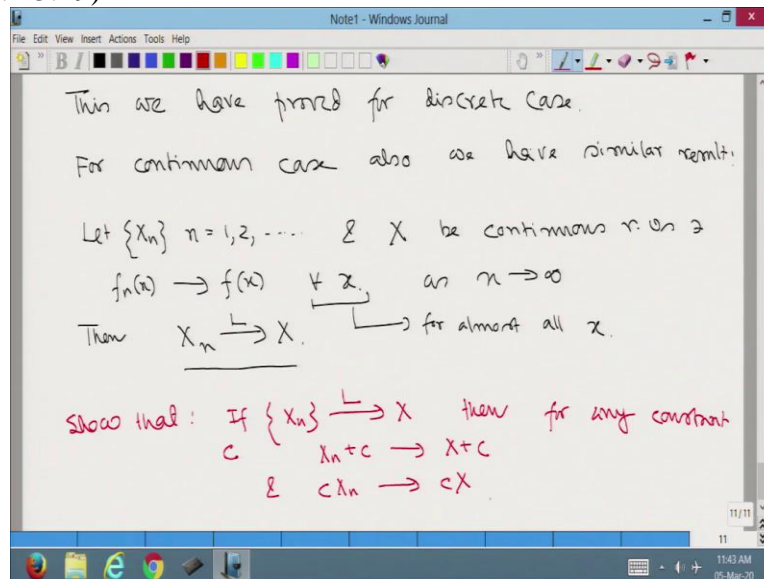 Note1 - Windows Journal
File Edit View Insert Actions Tools Help
This we have proved for discrete case.
For continuous case also we have similar result.
Let {Xn} n = 1, 2, ---- & X be continuous r.vs ∋
fn(x) → f(x) ∀ x, as n → ∞
Then Xn —L→ X. → for almost all x.
Show that: If {Xn} —L→ X then for any constant
c Xn+c → X+c
& cXn → cX
11/11
11
11:43 AM
05-Mar-20